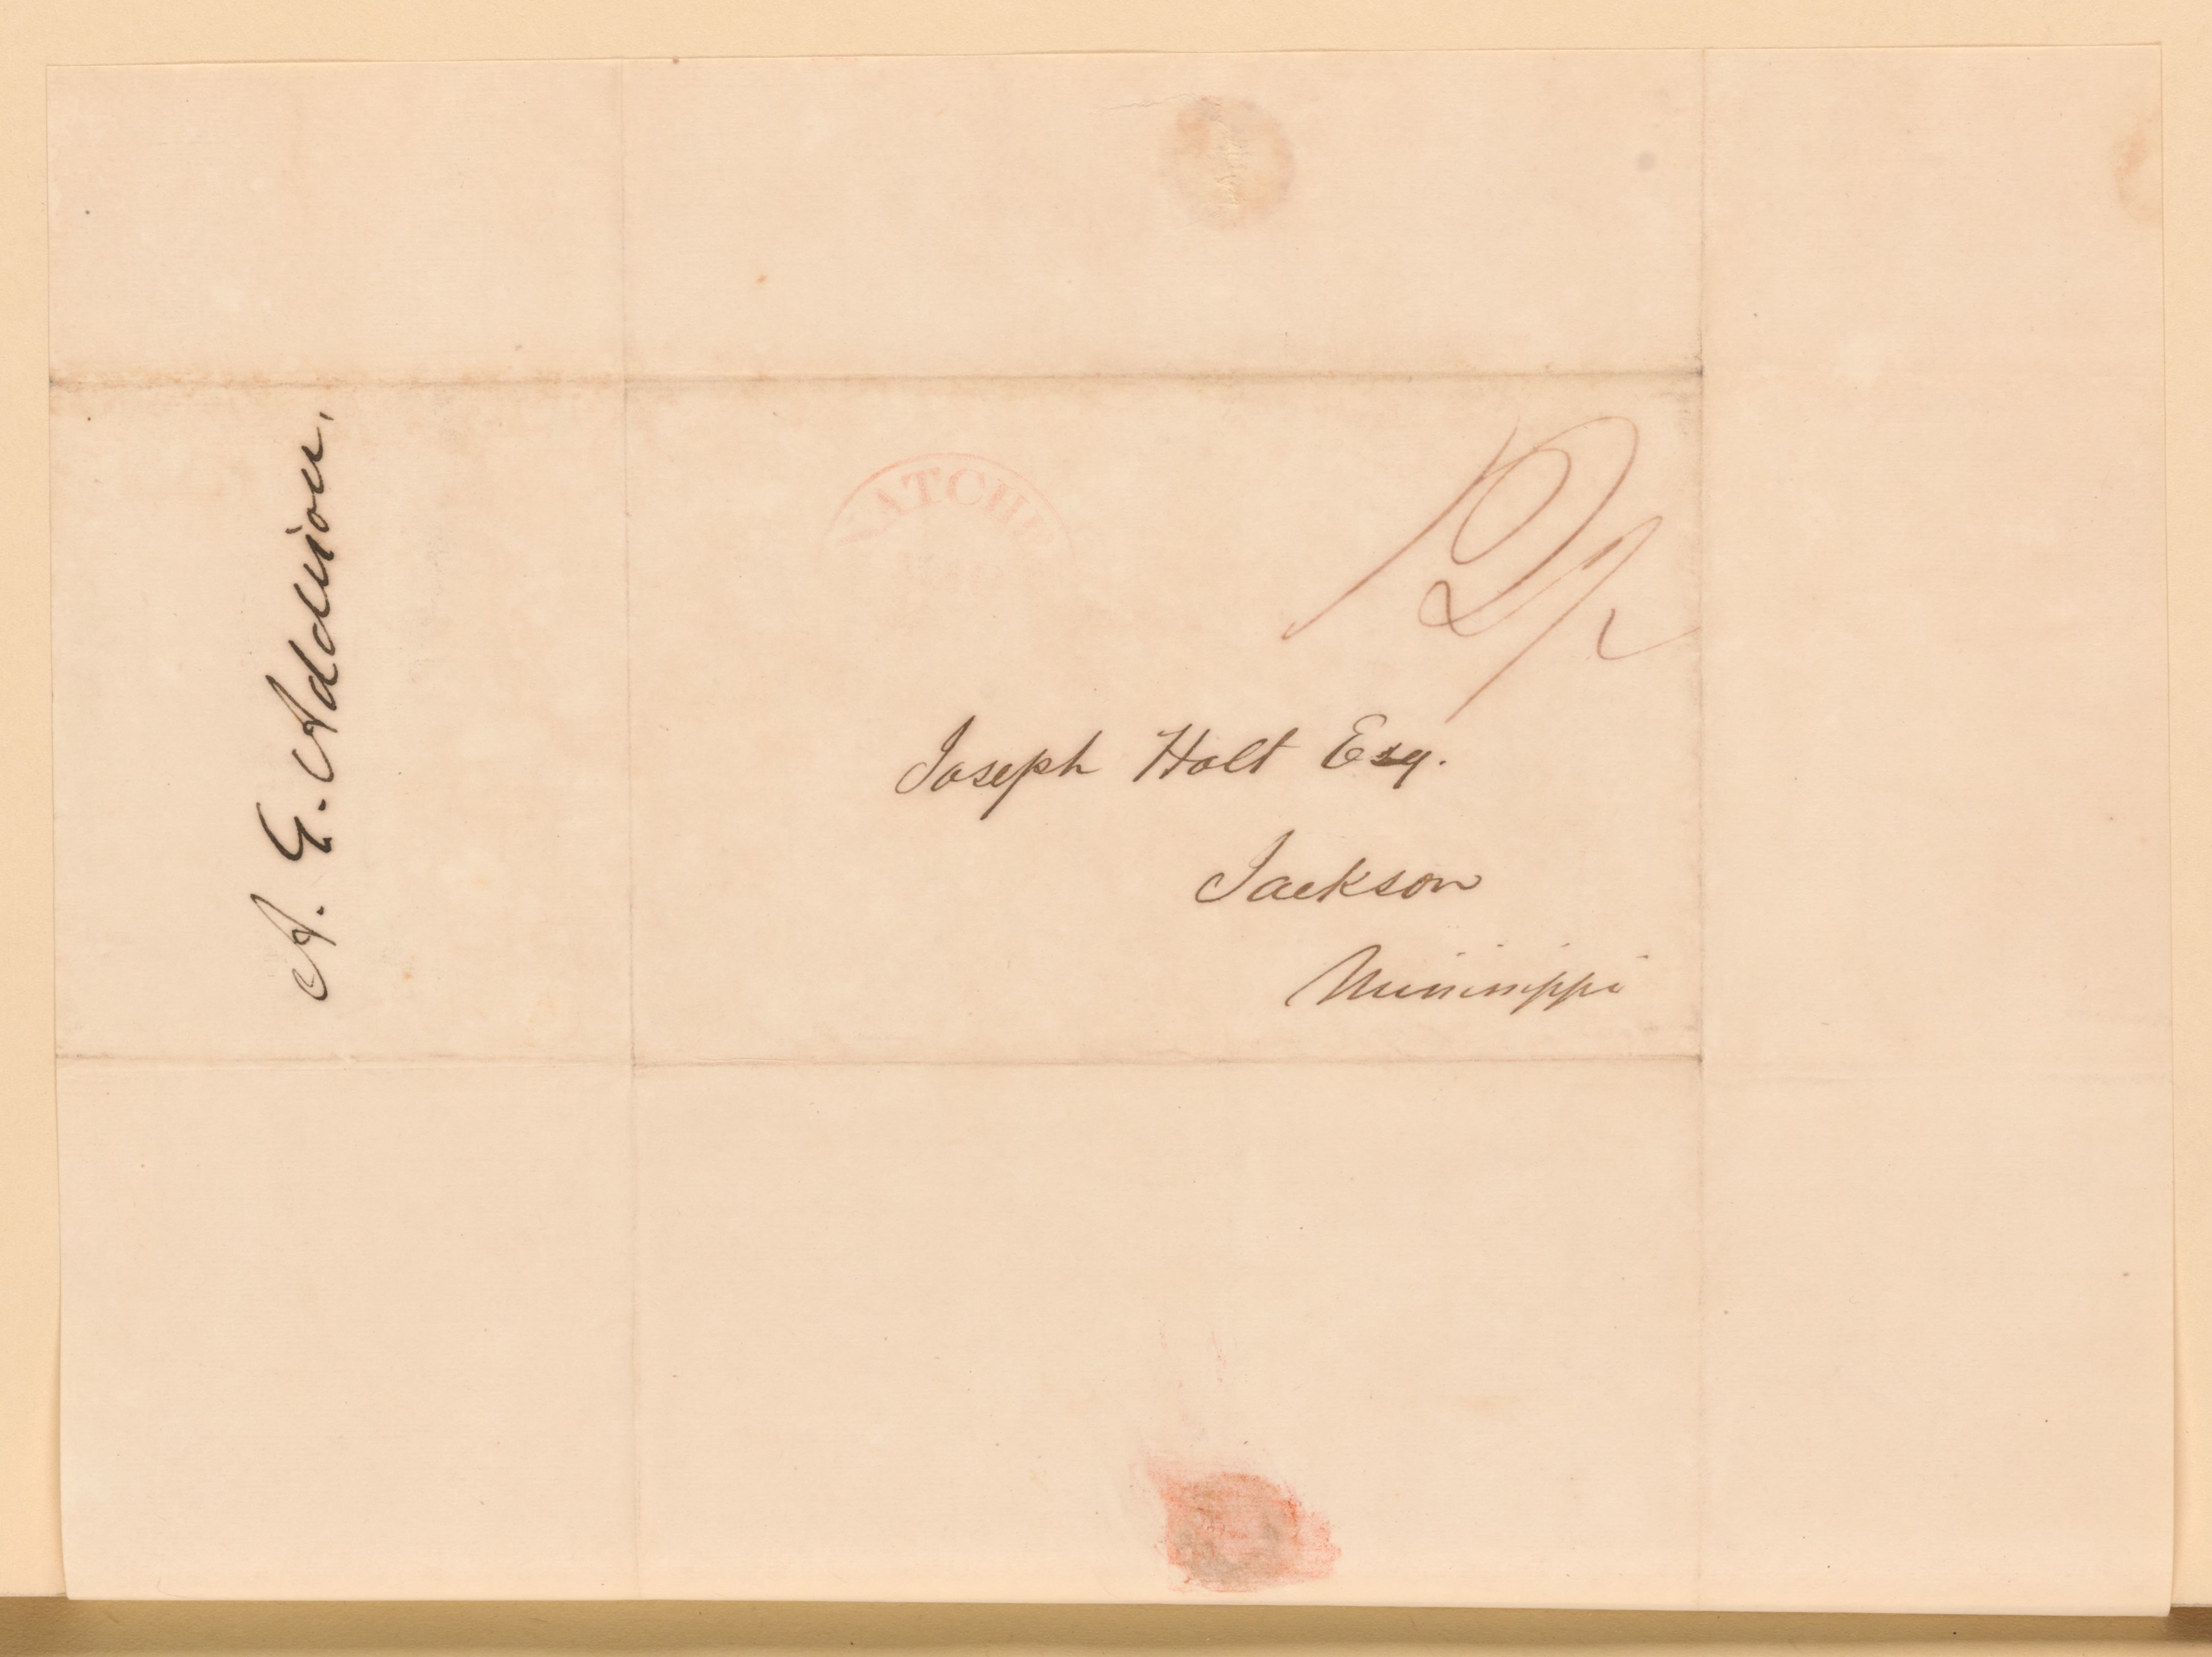 A. G. Addison.
NATCHE
12 1/2
Joseph Holt Esq.
Jackson
Mississippi